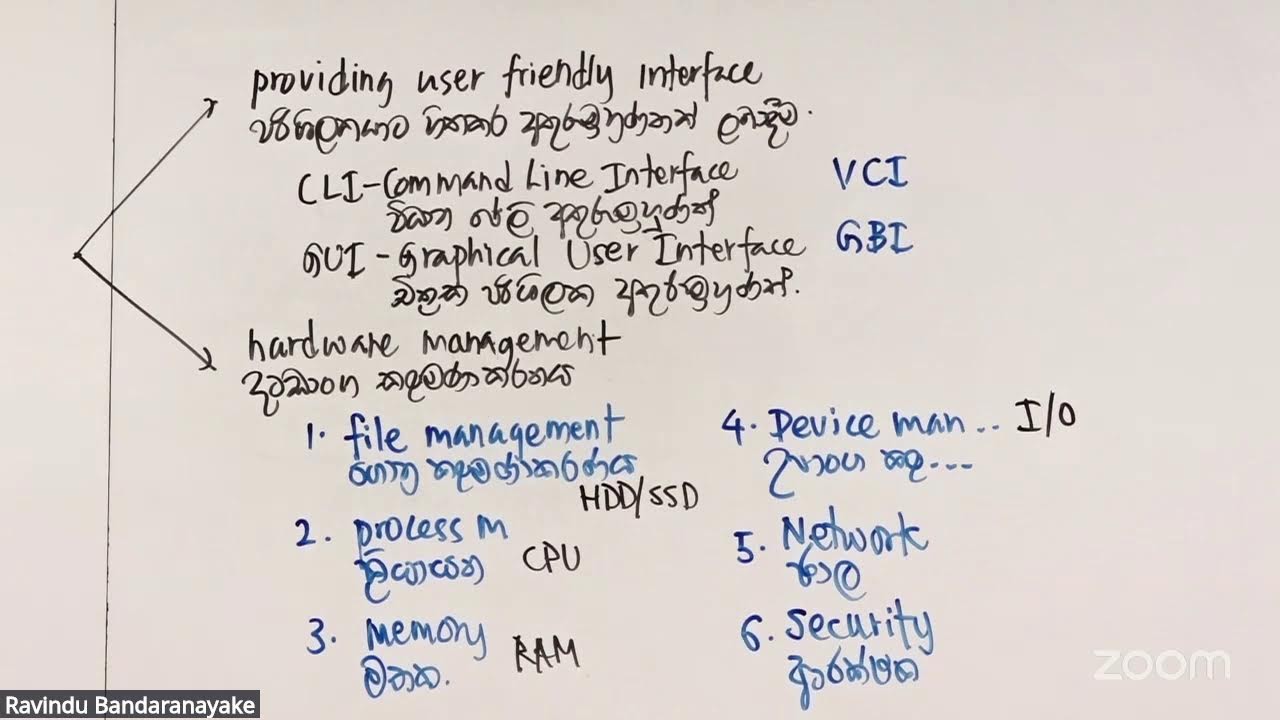 providing user friendly interface
පරිශීලකයාට හිතකර අතුරුමුහුණතක් ලබාදීම.
CLI - Command Line Interface
විධාන පේලි අතුරුමුහුණත්
VCI
GUI - Graphical User Interface
චිත්‍රක පරිශීලක අතුරුමුහුණත්.
GBI
hardware management
දෘඩාංග කළමණාකරනය
1. file management
ගොනු කළමණාකරණය
HDD/SSD
2. process M
ක්‍රියායන
CPU
3. memory
මතක.
RAM
4. Device man.. I/O
උපාංග කළ---
5. Network
ජාල
6. security
ආරක්ෂක
zoom
Ravindu Bandaranayake